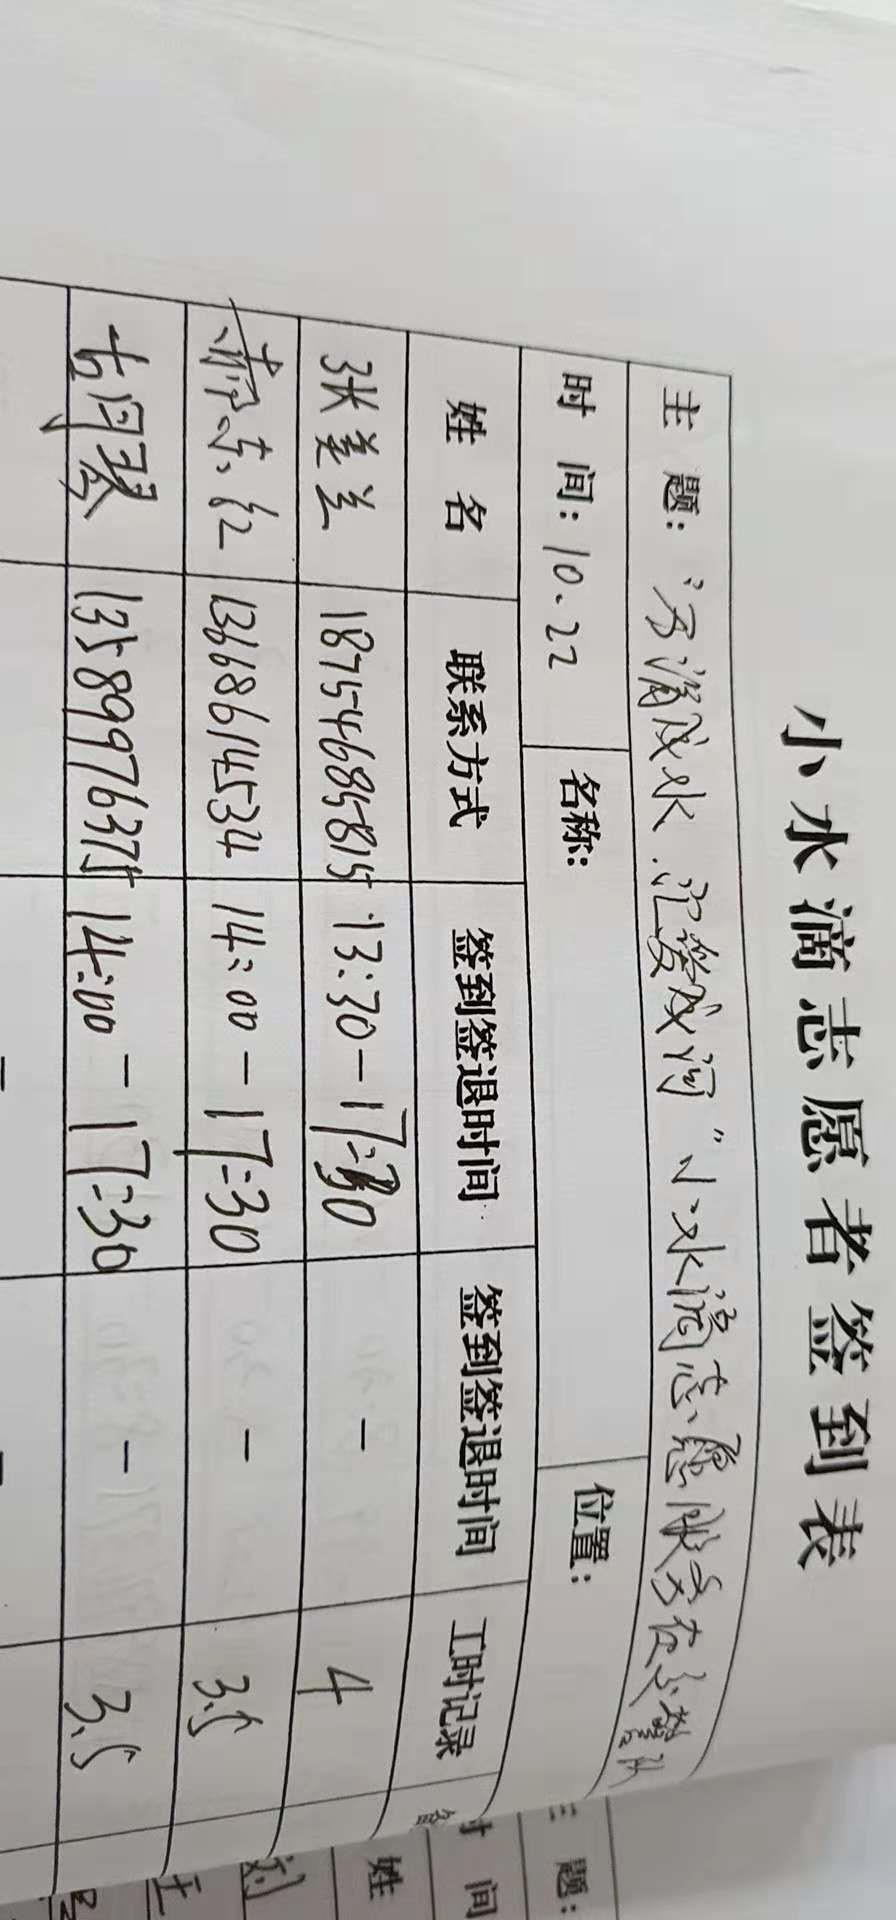 小水滴志愿者签到表
主 题：“万滴成水.汇聚成河”小水滴志愿服务在交警队
时 间：10.22 名称： 位置：
姓 名 联系方式 签到签退时间 签到签退时间 工时记录
张美兰 18754685815 13:30-17:30 - 4
东红 13668614534 14:00-17:30 - 3.5
胡琴 13589976375 14:00-17:30 - 3.5
题：
时 间
姓
刘
王